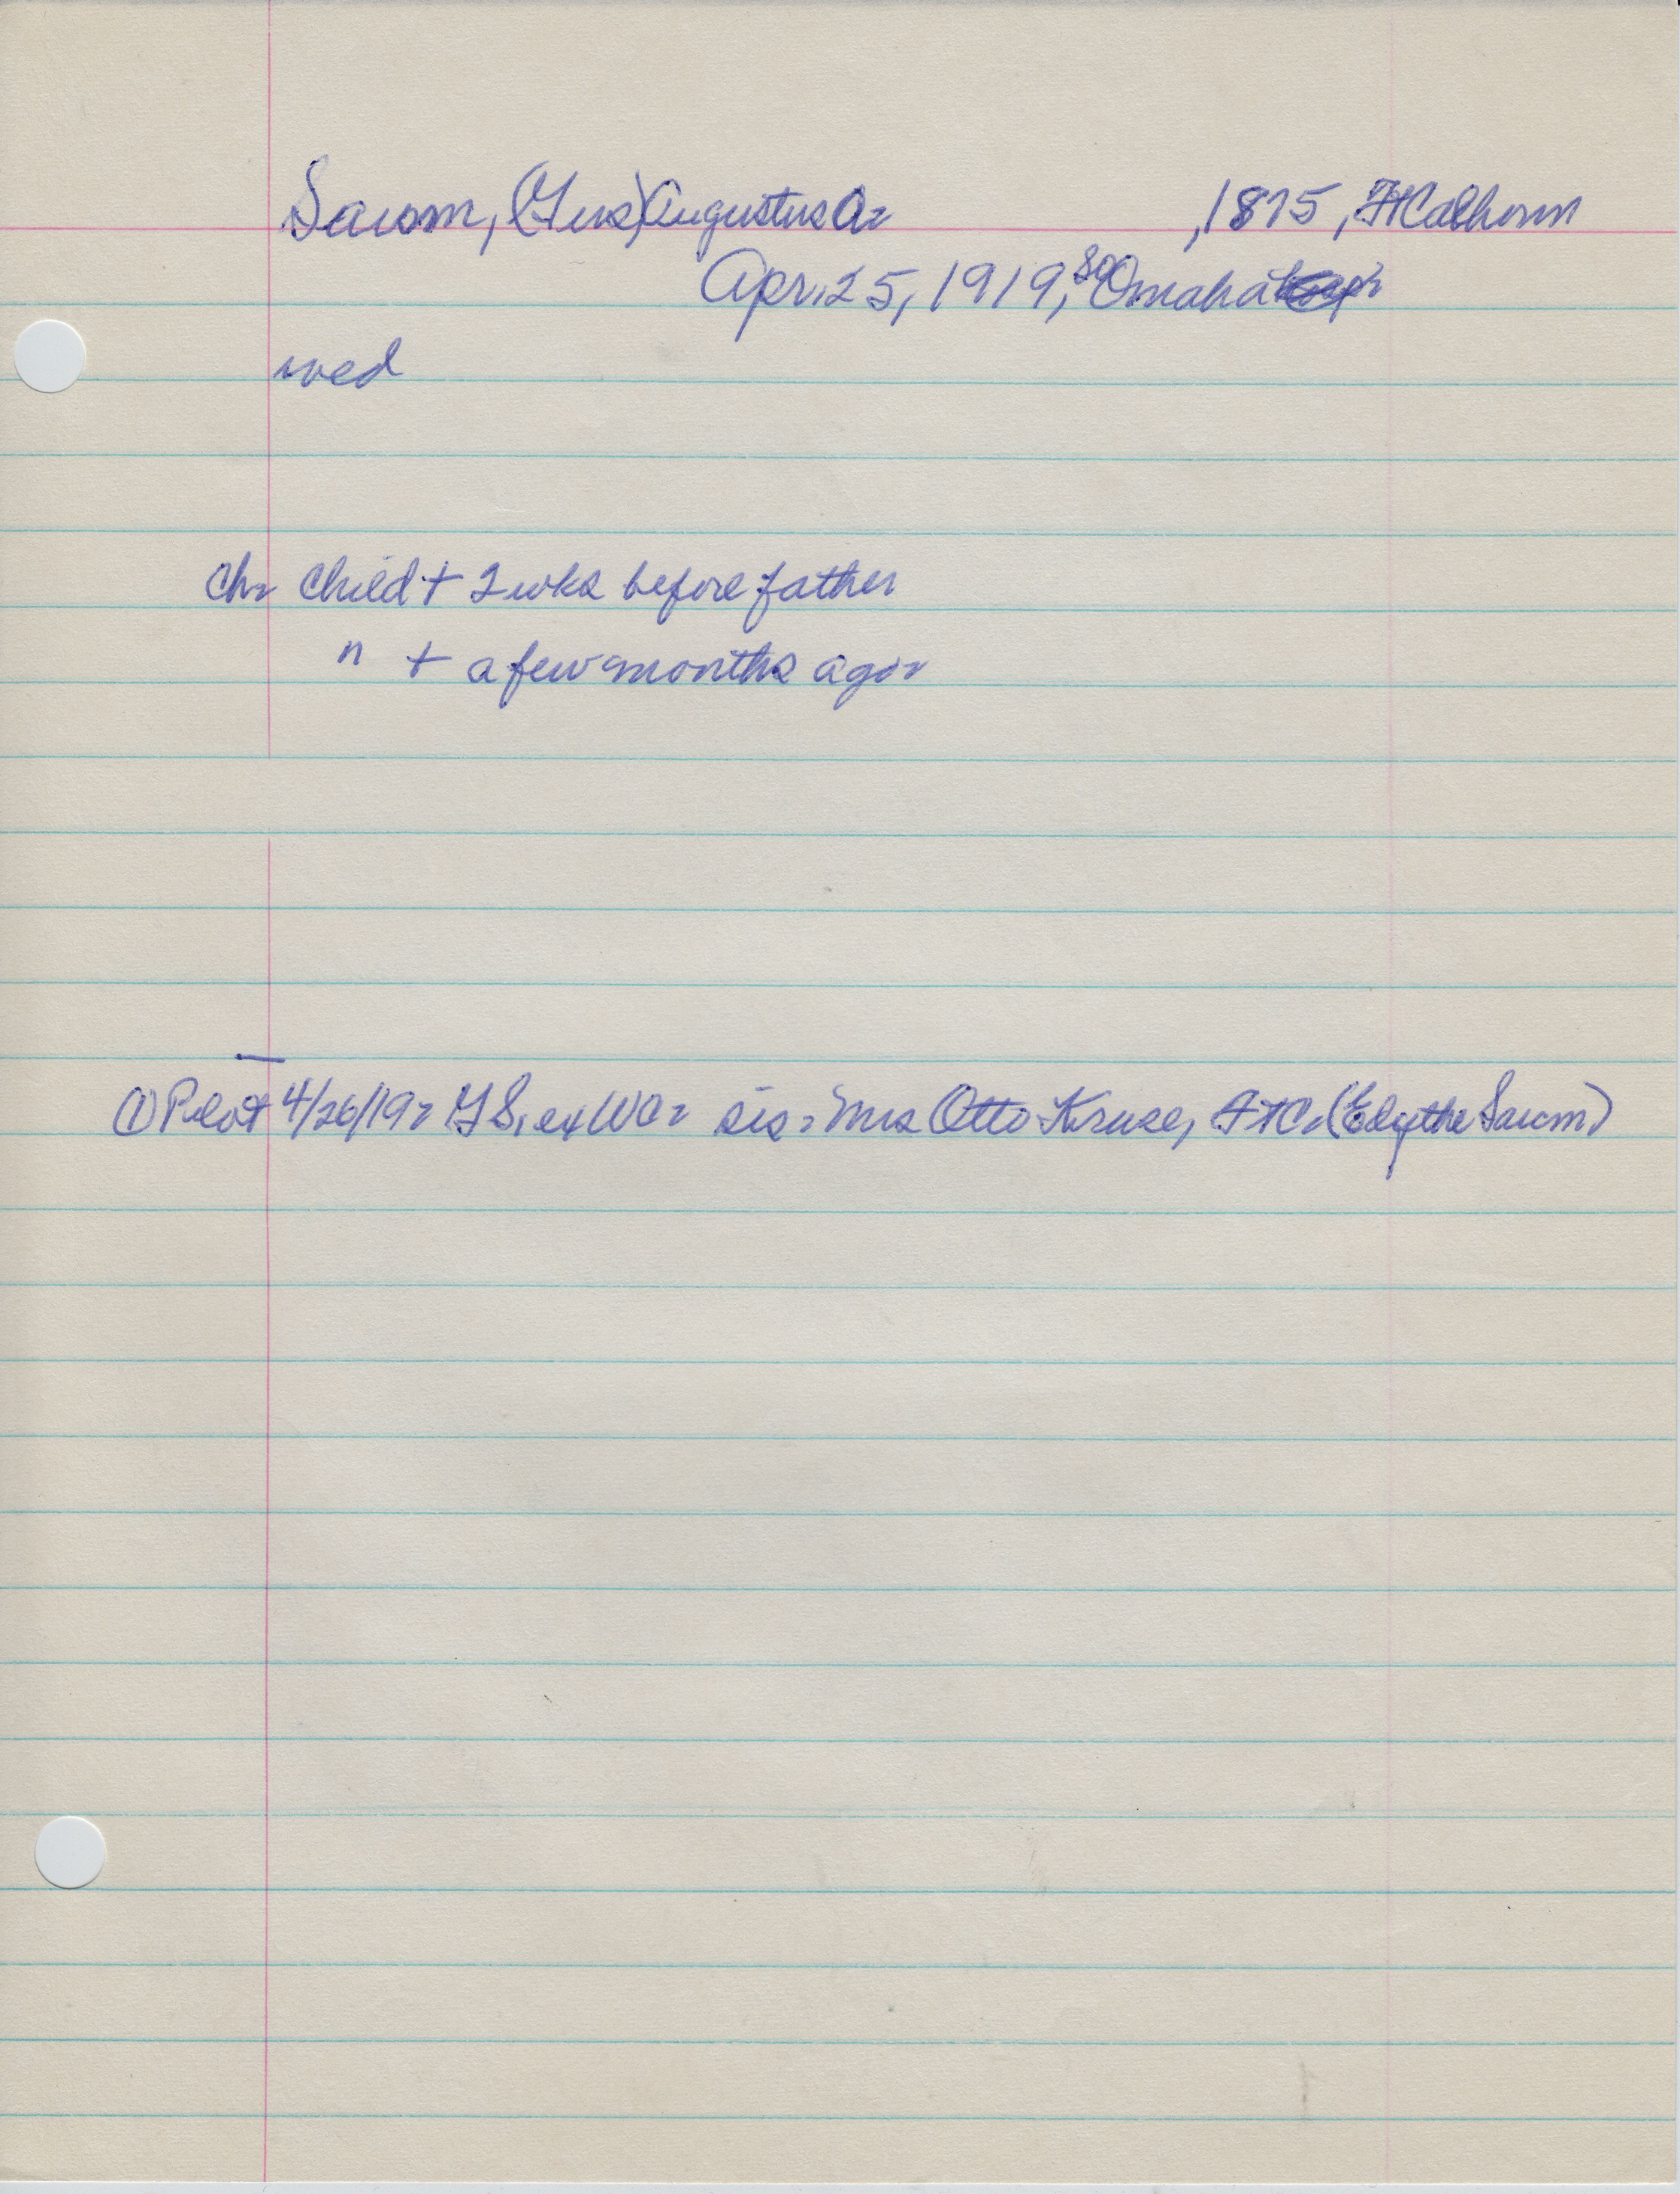 Sawm, (Gus) Augustus A. , 1875, Ft Calhoun
Apr. 25, 1919, So Omaha
wed
Ch. Child + 2 wks before father
" + a few months ago.
① Pilot 4/26/19. G S, ex WC. sis. Mrs Otto Kruse, Ft C. (Edythe Sawm)